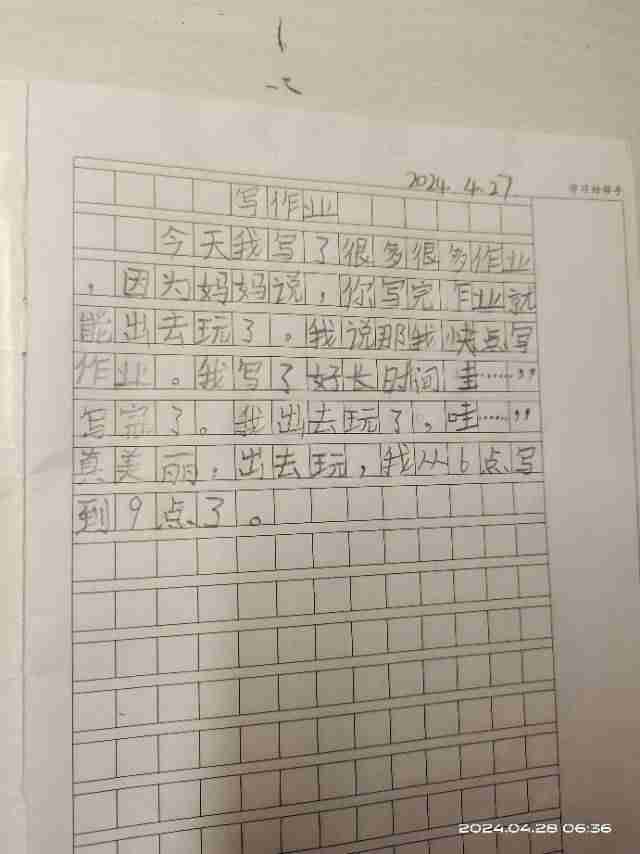 2024.4.27
写作业
今天我写了很多很多作业
，因为妈妈说，你写完乍业就
能出去玩了。我说那我快点写
作业。我写了好长时间圭……”
写完了。我出去玩了。哇……”
真美丽，出去玩，我从6点写
到9点了。
2024.04.28 06:36